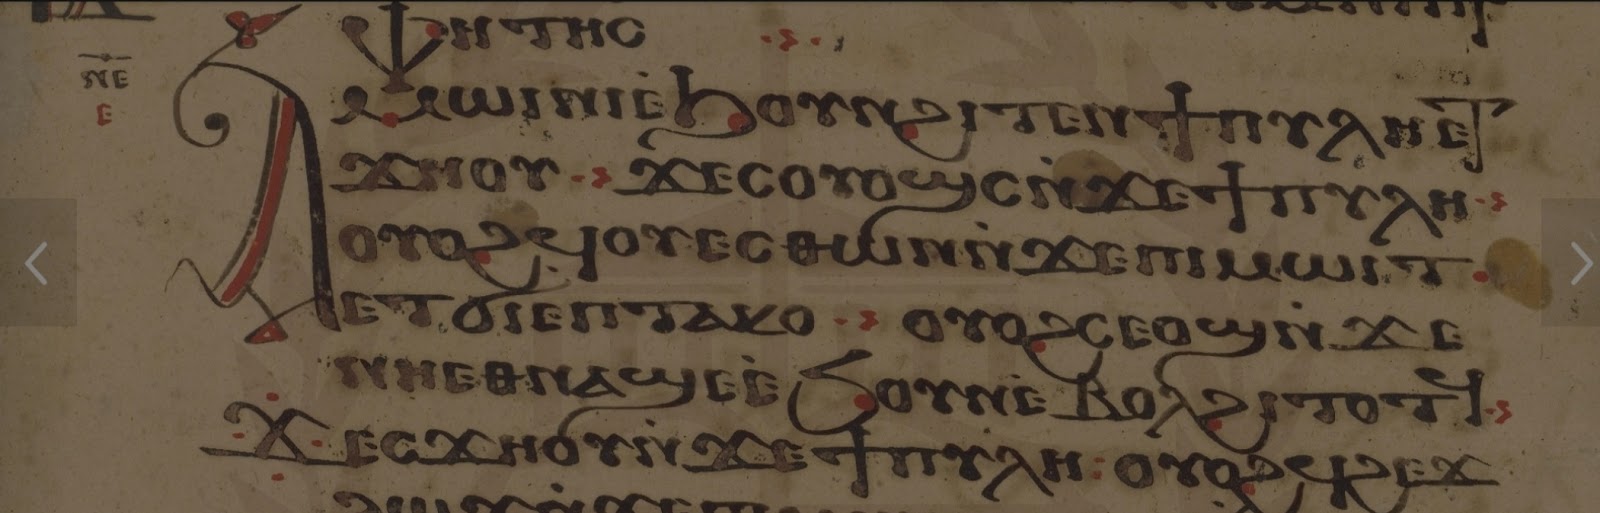 ⲫⲏⲧⲏⲥ
ⲛⲉ
ⲉ
ⲁⲙⲱⲓⲛⲓ ⲉ̇ϧⲟⲩⲛ ϩⲓⲧⲉⲛ ϯⲡⲩⲗⲏ ⲉⲧ
ϫⲏⲟⲩ · ϫⲉ ⲥⲟⲩⲟϣⲥ ⲛ̇ϫⲉ ϯⲡⲩⲗⲏ ·
ⲟⲩⲟϩ ϥⲟⲩⲉⲥⲑⲱⲛ ⲛ̇ϫⲉ ⲡⲓⲙⲱⲓⲧ ·
ⲉⲧϭⲓ ⲉⲡⲧⲁⲕⲟ · ⲟⲩⲟϩ ⲥⲉⲟϣ ⲛ̇ϫⲉ
ⲛⲏ ⲉⲑⲛⲁϣⲉ ⲉ̇ϧⲟⲩⲛ ⲉ̇ⲃⲟⲗ ϩⲓⲧⲟⲧϥ ·
ϫⲉ ⲥϫⲏⲟⲩ ⲛ̇ϫⲉ ϯⲡⲩⲗⲏ : ⲟⲩⲟϩ ϥϩⲉϫ